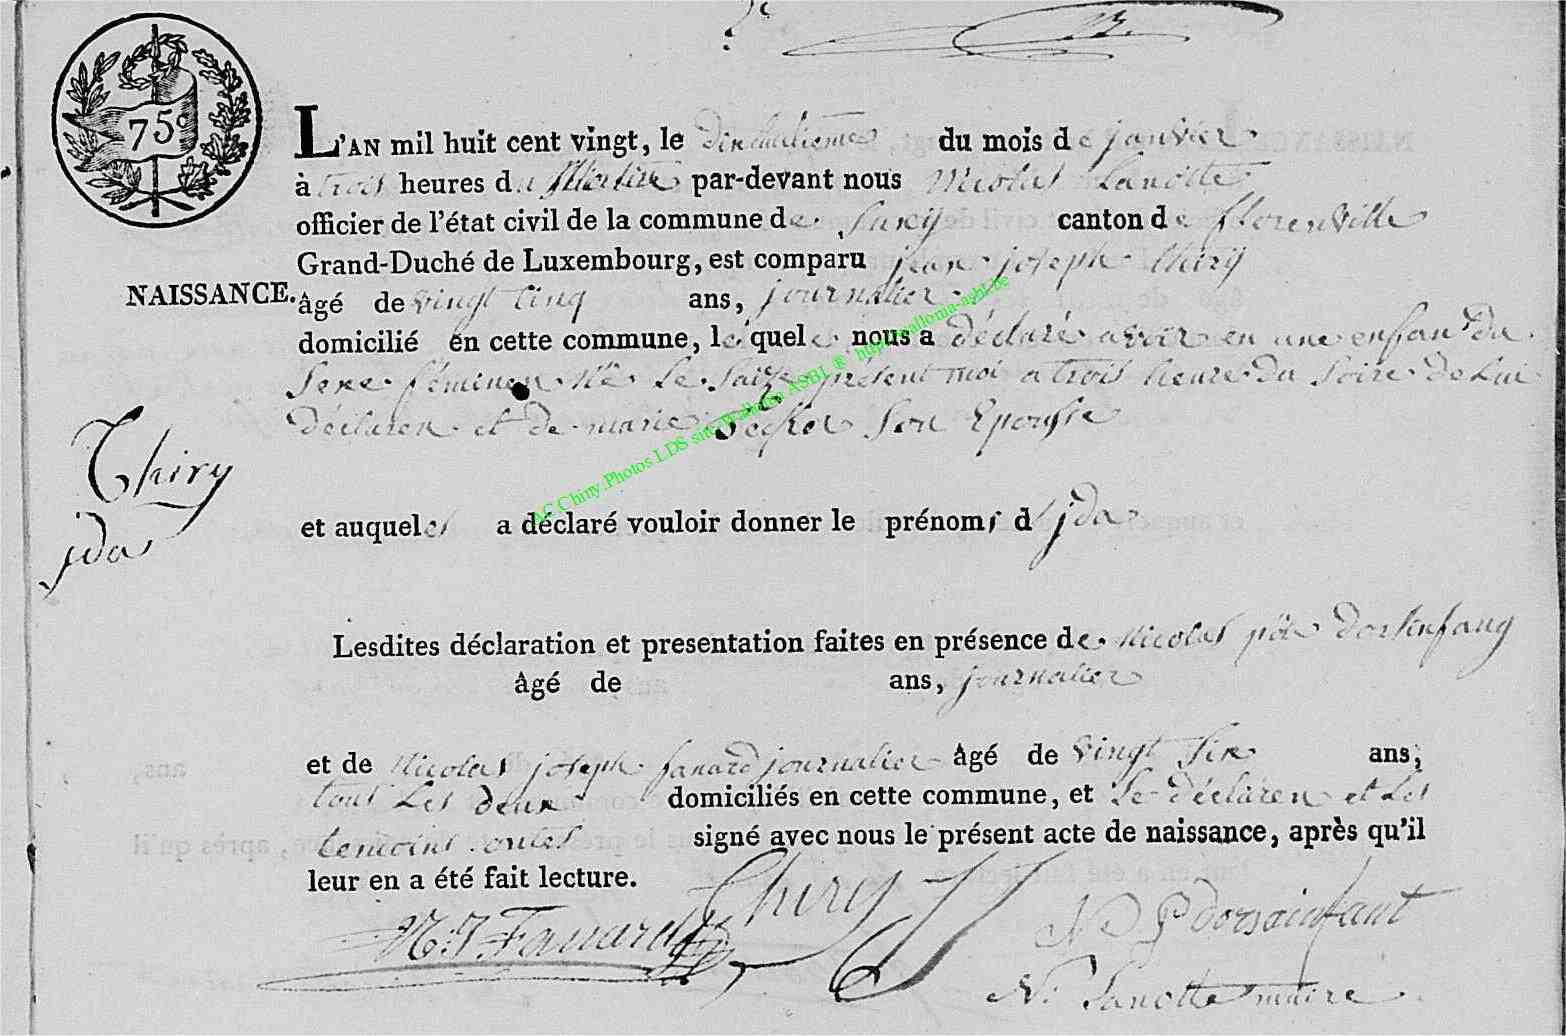 75c
L'AN mil huit cent vingt, le dixhuitieme du mois de janvier
à trois heures du par-devant nous Nicolas Lanotte
officier de l'état civil de la commune de Suxy canton de florenville
Grand-Duché de Luxembourg, est comparu jean joseph thiry
NAISSANCE.
âgé de vingt cinq ans, journalier
domicilié en cette commune, lequel nous a déclaré avoir eu une enfan du
Sexe féminen née Le Saize présent moi a trois heure du Soire de Lui
déclaren et de marie Son Epousse
Thiry
jda
et auquel a déclaré vouloir donner le prénoms d jda
Lesdites déclaration et presentation faites en présence de Nicolas
âgé de ans, journalier
et de Nicolas joseph fanard journalier âgé de vingt Six ans,
tous Les deux domiciliés en cette commune, et Le déclaren et Les
temoins ontes signé avec nous le présent acte de naissance, après qu'il
leur en a été fait lecture.
Thiry
N.J. Fanard
N P dorsainfant
N. Lanotte maire
AC Chiny.Photos LDS site Wallonia ASBL ® http://wallonia-asbl.be